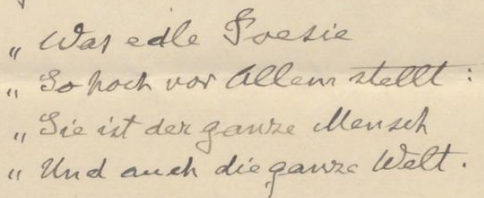 „ Was edle Poesie
„ So hoch vor Allem stellt :
„ Sie ist der ganze Mensch
„ Und auch die ganze Welt.